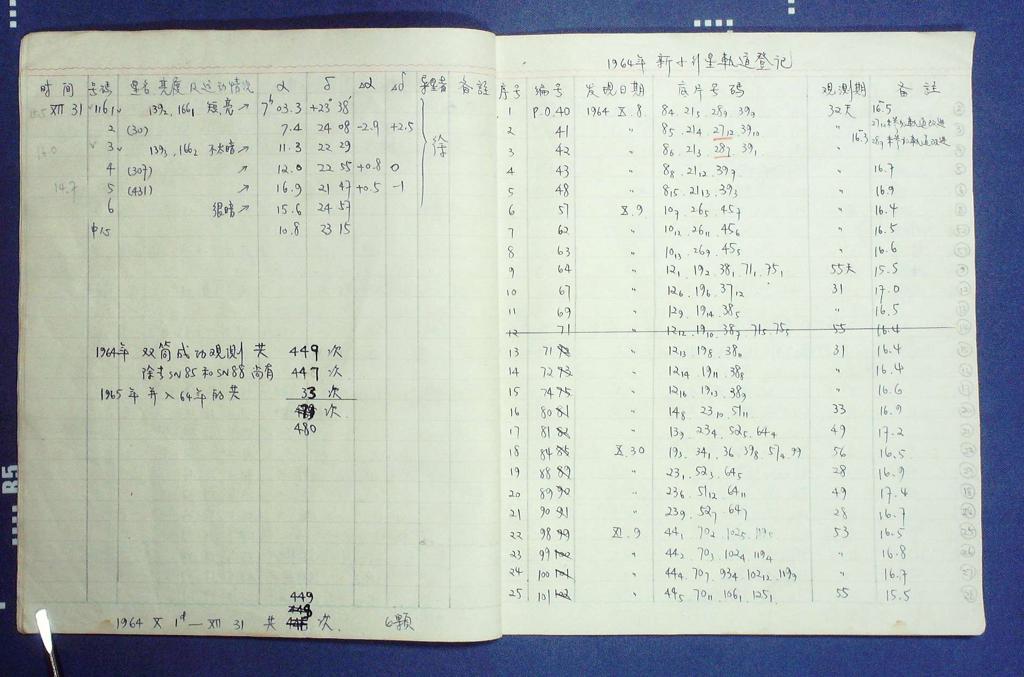 时间 号码 星名 亮度 及运动情况 α δ Δα Δδ 导星者 备註
XII 31 1161 139₂, 166₁ 短,亮↗ 7ʰ03.3 +23°38′ 徐
2 (30) 7.4 24 08 -2.9 +2.5
3 139₃, 166₂ 不太暗↗ 11.3 22 29
4 (307) ↗ 12.0 22 55 +0.8 0
5 (431) ↗ 16.9 21 47 +0.5 -1
6 很暗↗ 15.6 24 57
中15 10.8 23 15
1964年 双筒成功观测 共 449 次
除去SN85和SN88 尚有 447 次
1965年并入64年的共 33 次
次
480
449
1964 X 1ᵈ — XII 31 共 次. 6颗
1964年 新小行星軌道登记
序号 编号 发现日期 底片号码 观测期 备註
1 P.O.40 1964 X.8 8₄. 21₅. 28₉. 39₁ 32天 16.5
2 41 〃 8₅. 21₄. 27₁₂. 39₁₀ 〃
3 42 〃 8₆. 21₃. 28₇. 39₁ 〃 16.3
4 43 〃 8₈. 21₁₂. 39₉ 〃 16.7
5 48 〃 8₁₅. 21₁₃. 39₃ 〃 16.9
6 57 X.9 10₇. 26₅. 45₇ 〃 16.4
7 62 〃 10₁₂. 26₁₁. 45₆ 〃 16.5
8 63 〃 10₁₃. 26₉. 45₅ 〃 16.6
9 64 〃 12₁. 19₂. 38₁. 71₁. 75₁ 55天 15.5
10 67 〃 12₆. 19₆. 37₁₂ 31 17.0
11 69 〃 12₉. 19₁₄. 38₅ 〃 16.5
12 71 〃 12₁₂. 19₁₀. 38₇. 71₅. 75₅ 55 16.4
13 71 〃 12₁₃. 19₈. 38₆ 31 16.4
14 72 〃 12₁₄. 19₁₁. 38₈ 〃 16.4
15 74 〃 12₁₆. 19₁₃. 38₉ 〃 16.6
16 80 〃 14₈. 23₁₀. 51₁₁ 33 16.9
17 81 〃 13₉. 23₄. 52₅. 64₄ 49 17.2
18 84 X.30 19₃. 34₁. 36. 39₈. 57₄. 99 56 16.5
19 88 〃 23₁. 52₃. 64₅ 28 16.9
20 89 〃 23₆. 51₁₂. 64₁₁ 49 17.4
21 90 〃 23₉. 52₇. 64₇ 28 16.7
22 98 XI.9 44₁. 70₂. 102₅. 119₅ 53 16.5
23 99 〃 44₂. 70₃. 102₄. 119₄ 〃 16.8
24 100 〃 44₄. 70₇. 93₄. 102₁₂. 119₉ 〃 16.7
25 101 〃 44₅. 70₁₁. 106₁. 125₁ 55 15.5
B5